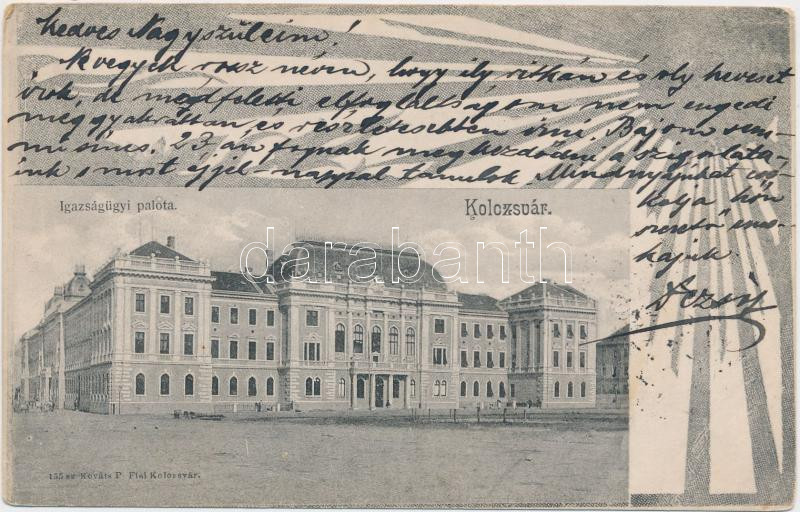 Kedves Nagyszüleim!
Ne vegyék rossz néven, hogy ily ritkán és oly keveset
írok, de megfeletti elfoglaltságom nem engedi
meg gyakrabban és részletesebben írni. Bajom sem-
mi sincs. 23.-án fognak megkezdődni a szigorlata-
ink s most éjjel-nappal tanulok. Mindnyájukat csó-
kolja hőn
szerető uno-
kájuk
Dezső
Igazságügyi palota.
Kolozsvár.
darabanth
155 sz Kováts P. Fiai Kolozsvár.